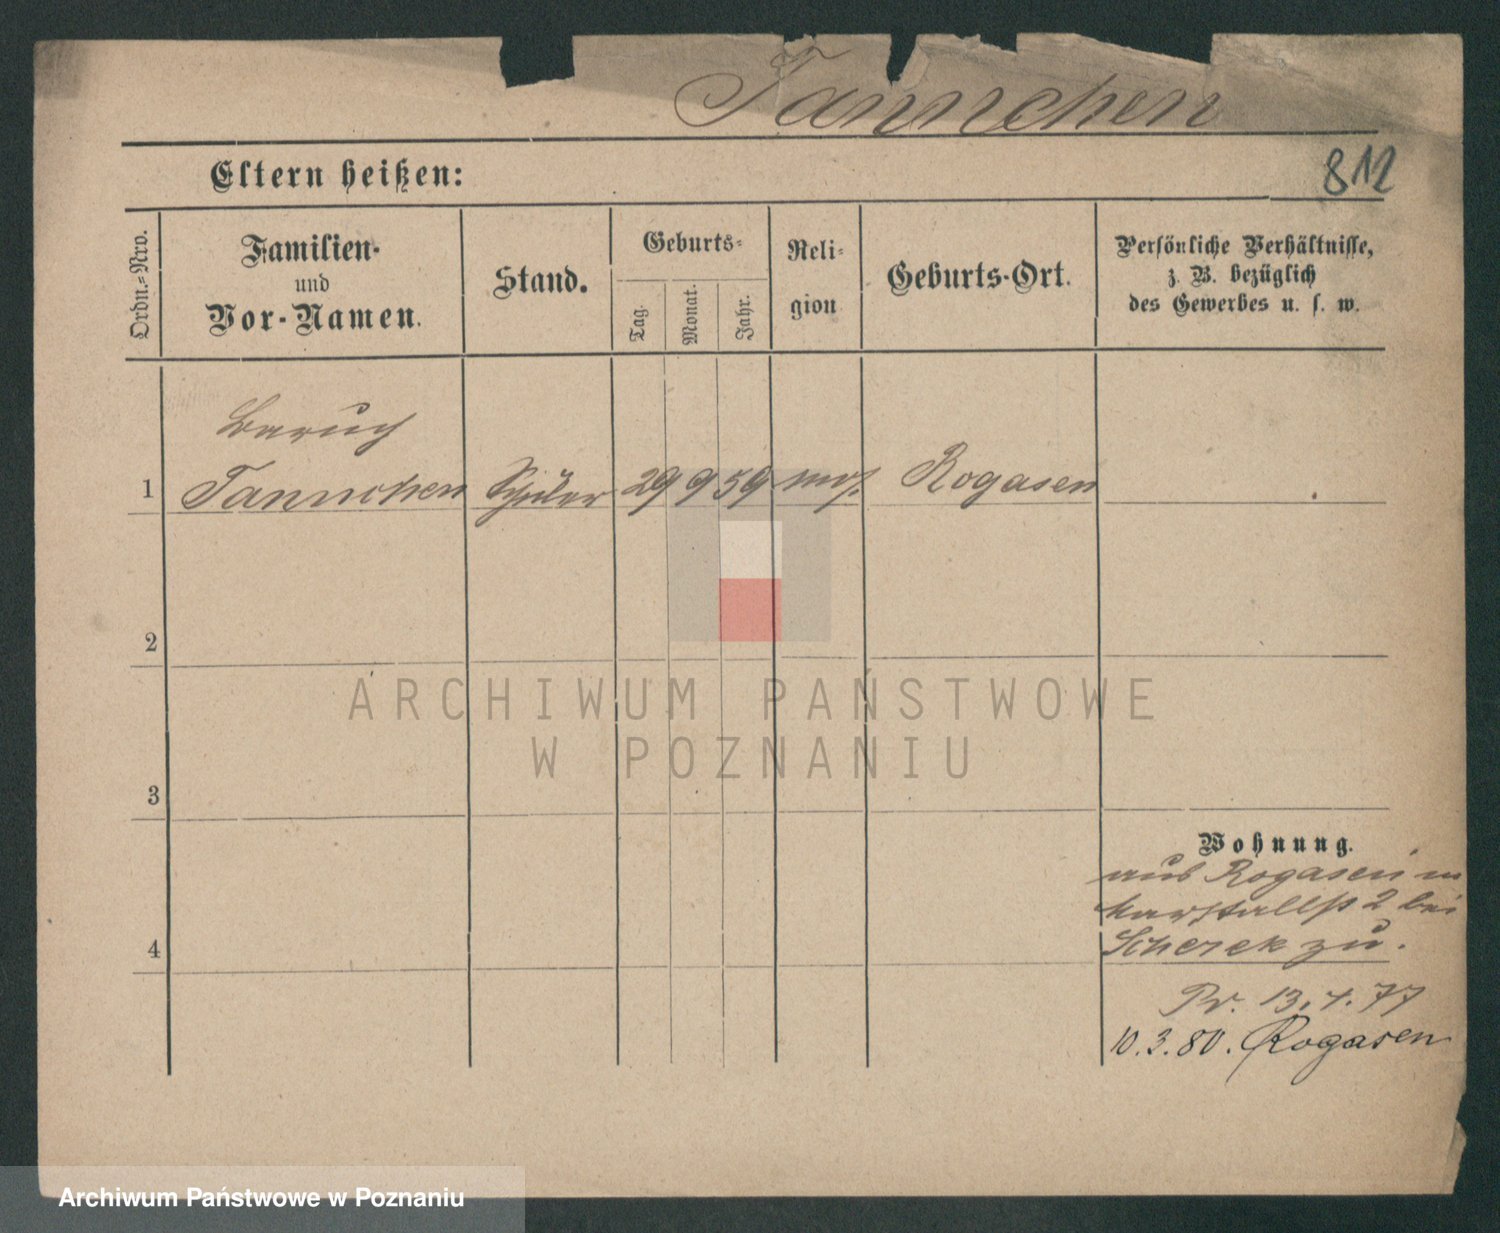 Tannchen
812
Eltern heißen:
Ordn.-Nro.
Familien-
und
Vor-Namen.
Stand.
Geburts-
Tag.
Monat.
Jahr.
Reli-
gion
Geburts-Ort.
Persönliche Verhältnisse,
z. B. bezüglich
des Gewerbes u. s. w.
Baruch
1 Tannchen Schüler 29 9 59 mos. Rogasen
2
ARCHIWUM PAŃSTWOWE
W POZNANIU
3
Wohnung.
aus Rogasen in
Marstallst 2 bei
Scherek zu.
4
Pr. 13.4.77
10.3.80. Rogasen
Archiwum Państwowe w Poznaniu